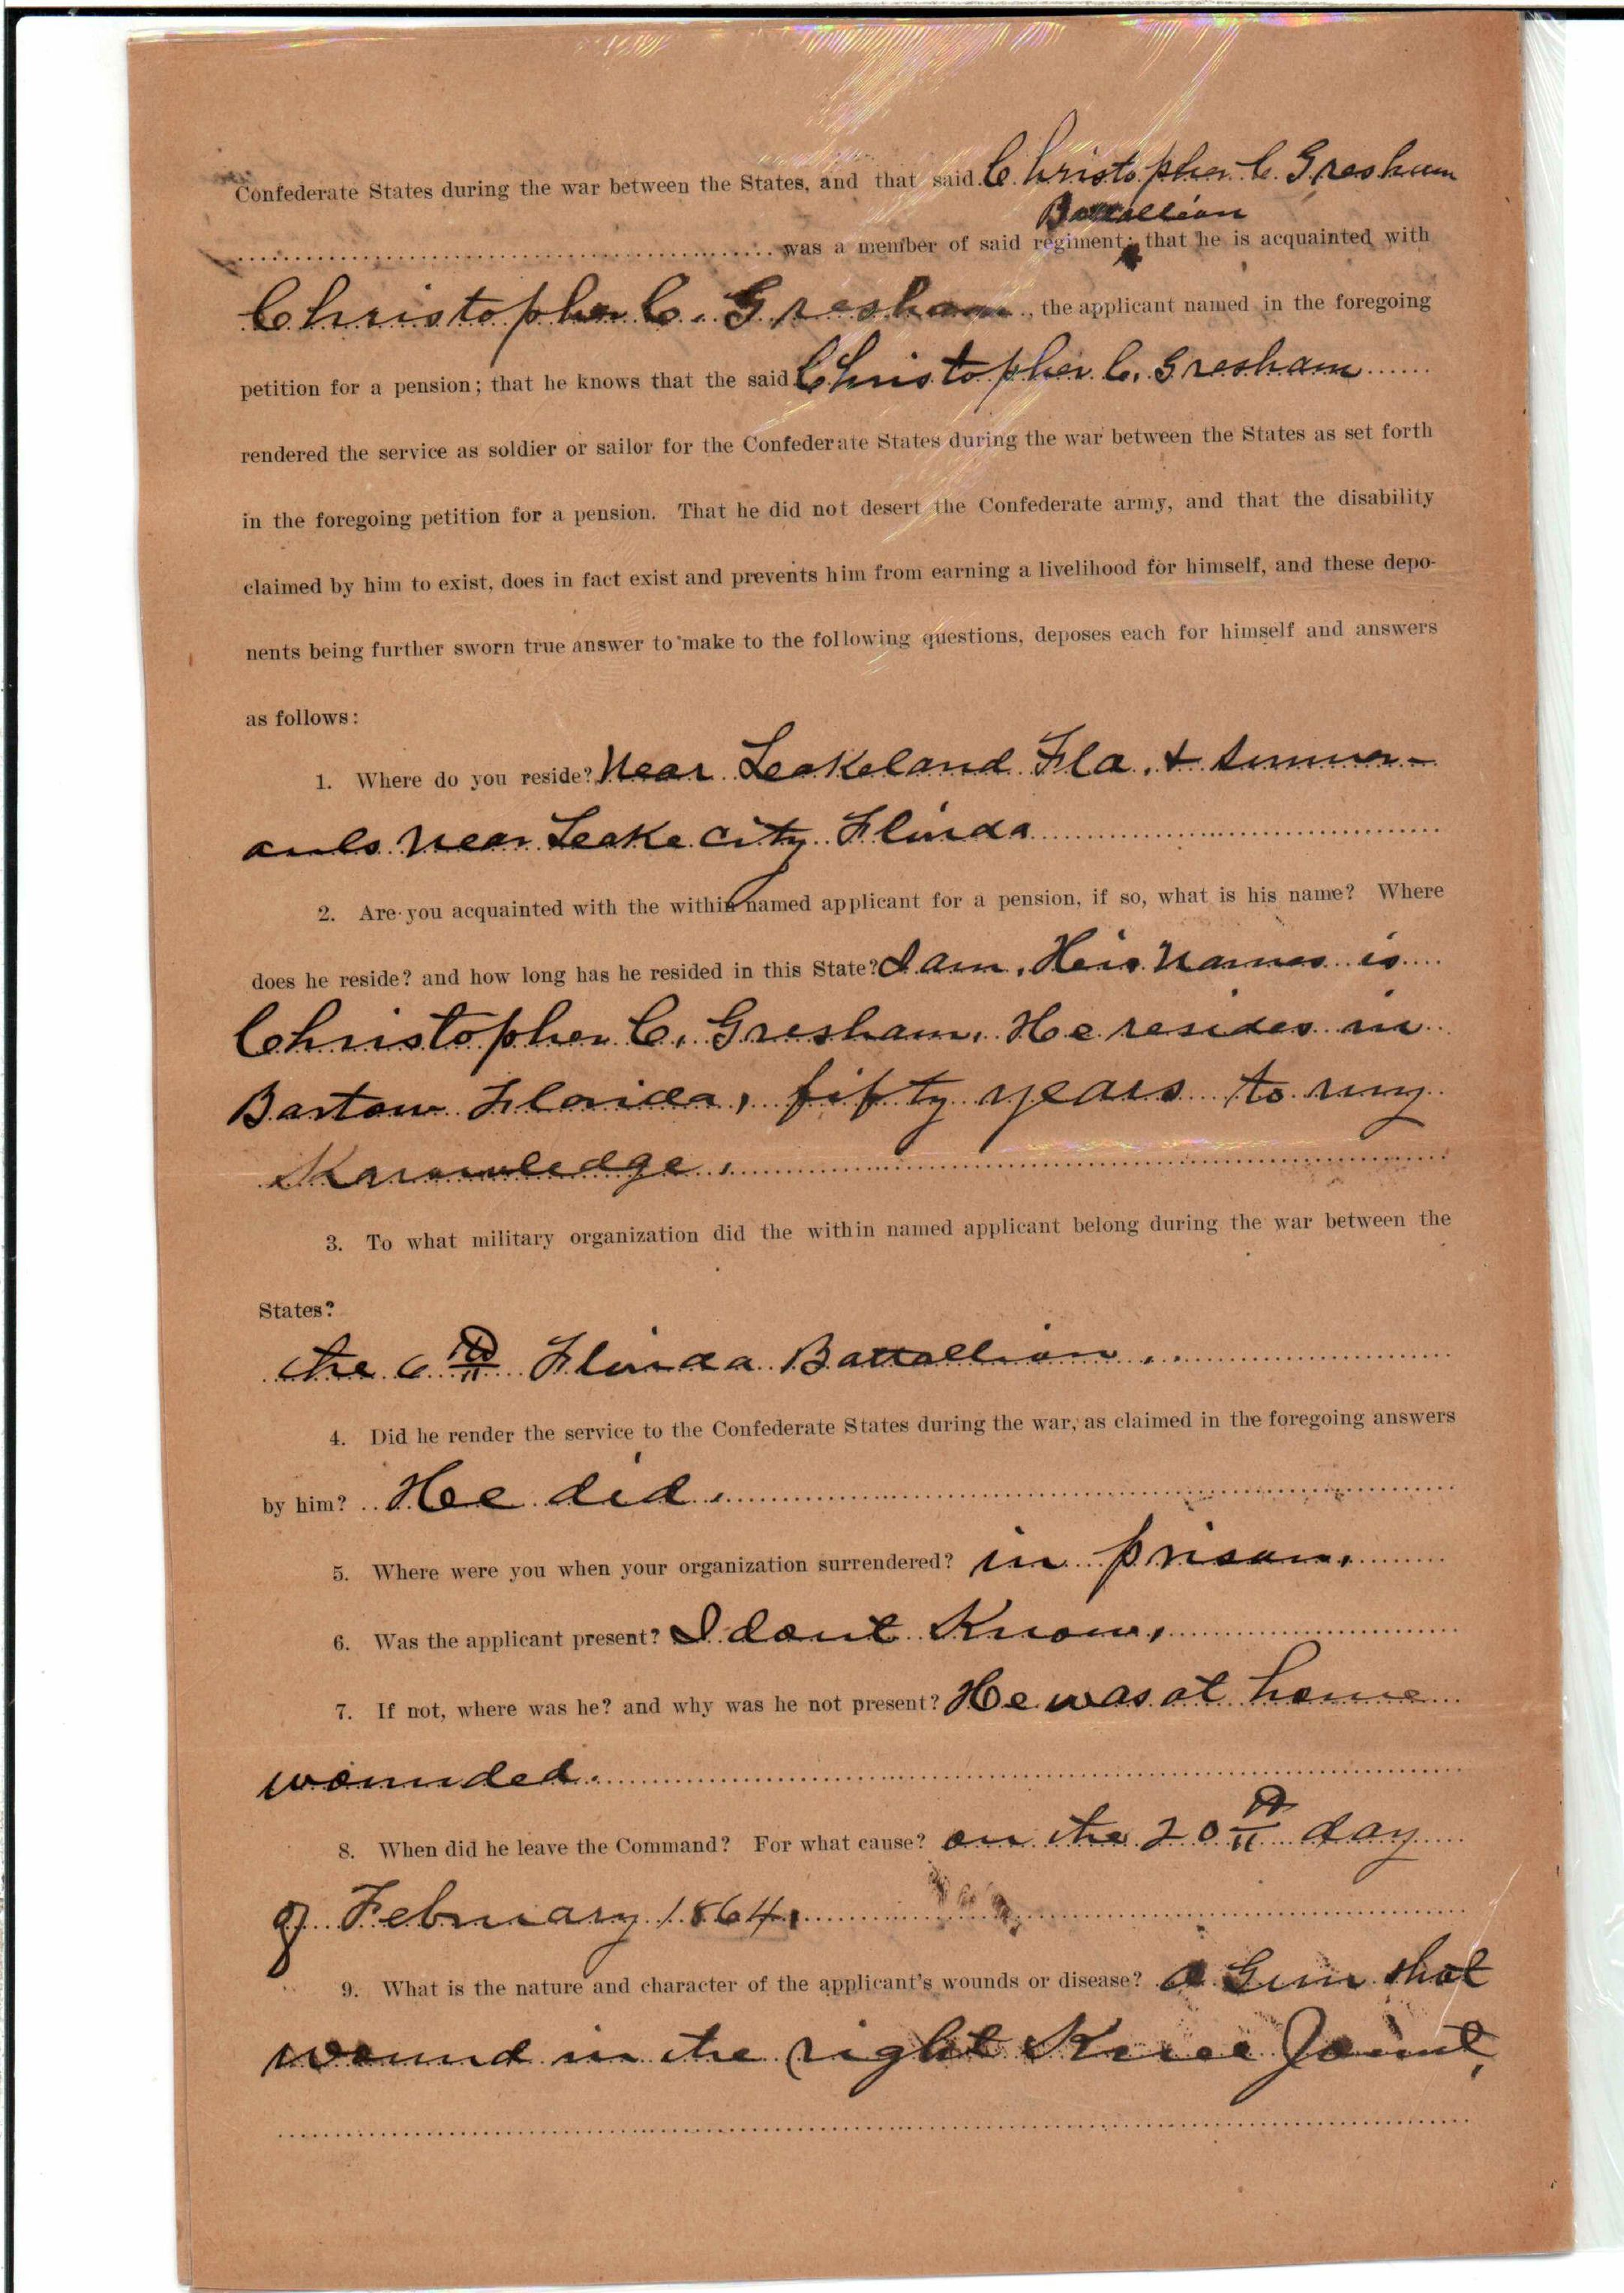 Confederate States during the war between the States, and that said Christopher C. Gresham
Battallion
was a member of said regiment; that he is acquainted with
Christopher C. Gresham, the applicant named in the foregoing
petition for a pension; that he knows that the said Christopher C. Gresham
rendered the service as soldier or sailor for the Confederate States during the war between the States as set forth
in the foregoing petition for a pension. That he did not desert the Confederate army, and that the disability
claimed by him to exist, does in fact exist and prevents him from earning a livelihood for himself, and these depo-
nents being further sworn true answer to make to the following questions, deposes each for himself and answers
as follows:
1. Where do you reside? Near Leakeland Fla. &
near Leake City Florida
2. Are you acquainted with the within named applicant for a pension, if so, what is his name? Where
does he reside? and how long has he resided in this State? I am. His name is
Christopher C. Gresham. He resides in
Bartow Florida, fifty years to my
Knowledge.
3. To what military organization did the within named applicant belong during the war between the
States?
the 6th Florida Battallion.
4. Did he render the service to the Confederate States during the war, as claimed in the foregoing answers
by him? He did.
5. Where were you when your organization surrendered? in prison.
6. Was the applicant present? I dont Know.
7. If not, where was he? and why was he not present? He was at home
wounded.
8. When did he leave the Command? For what cause? on the 20th day
of February 1864.
9. What is the nature and character of the applicant's wounds or disease? A Gun shot
wound in the right Knee Joint,